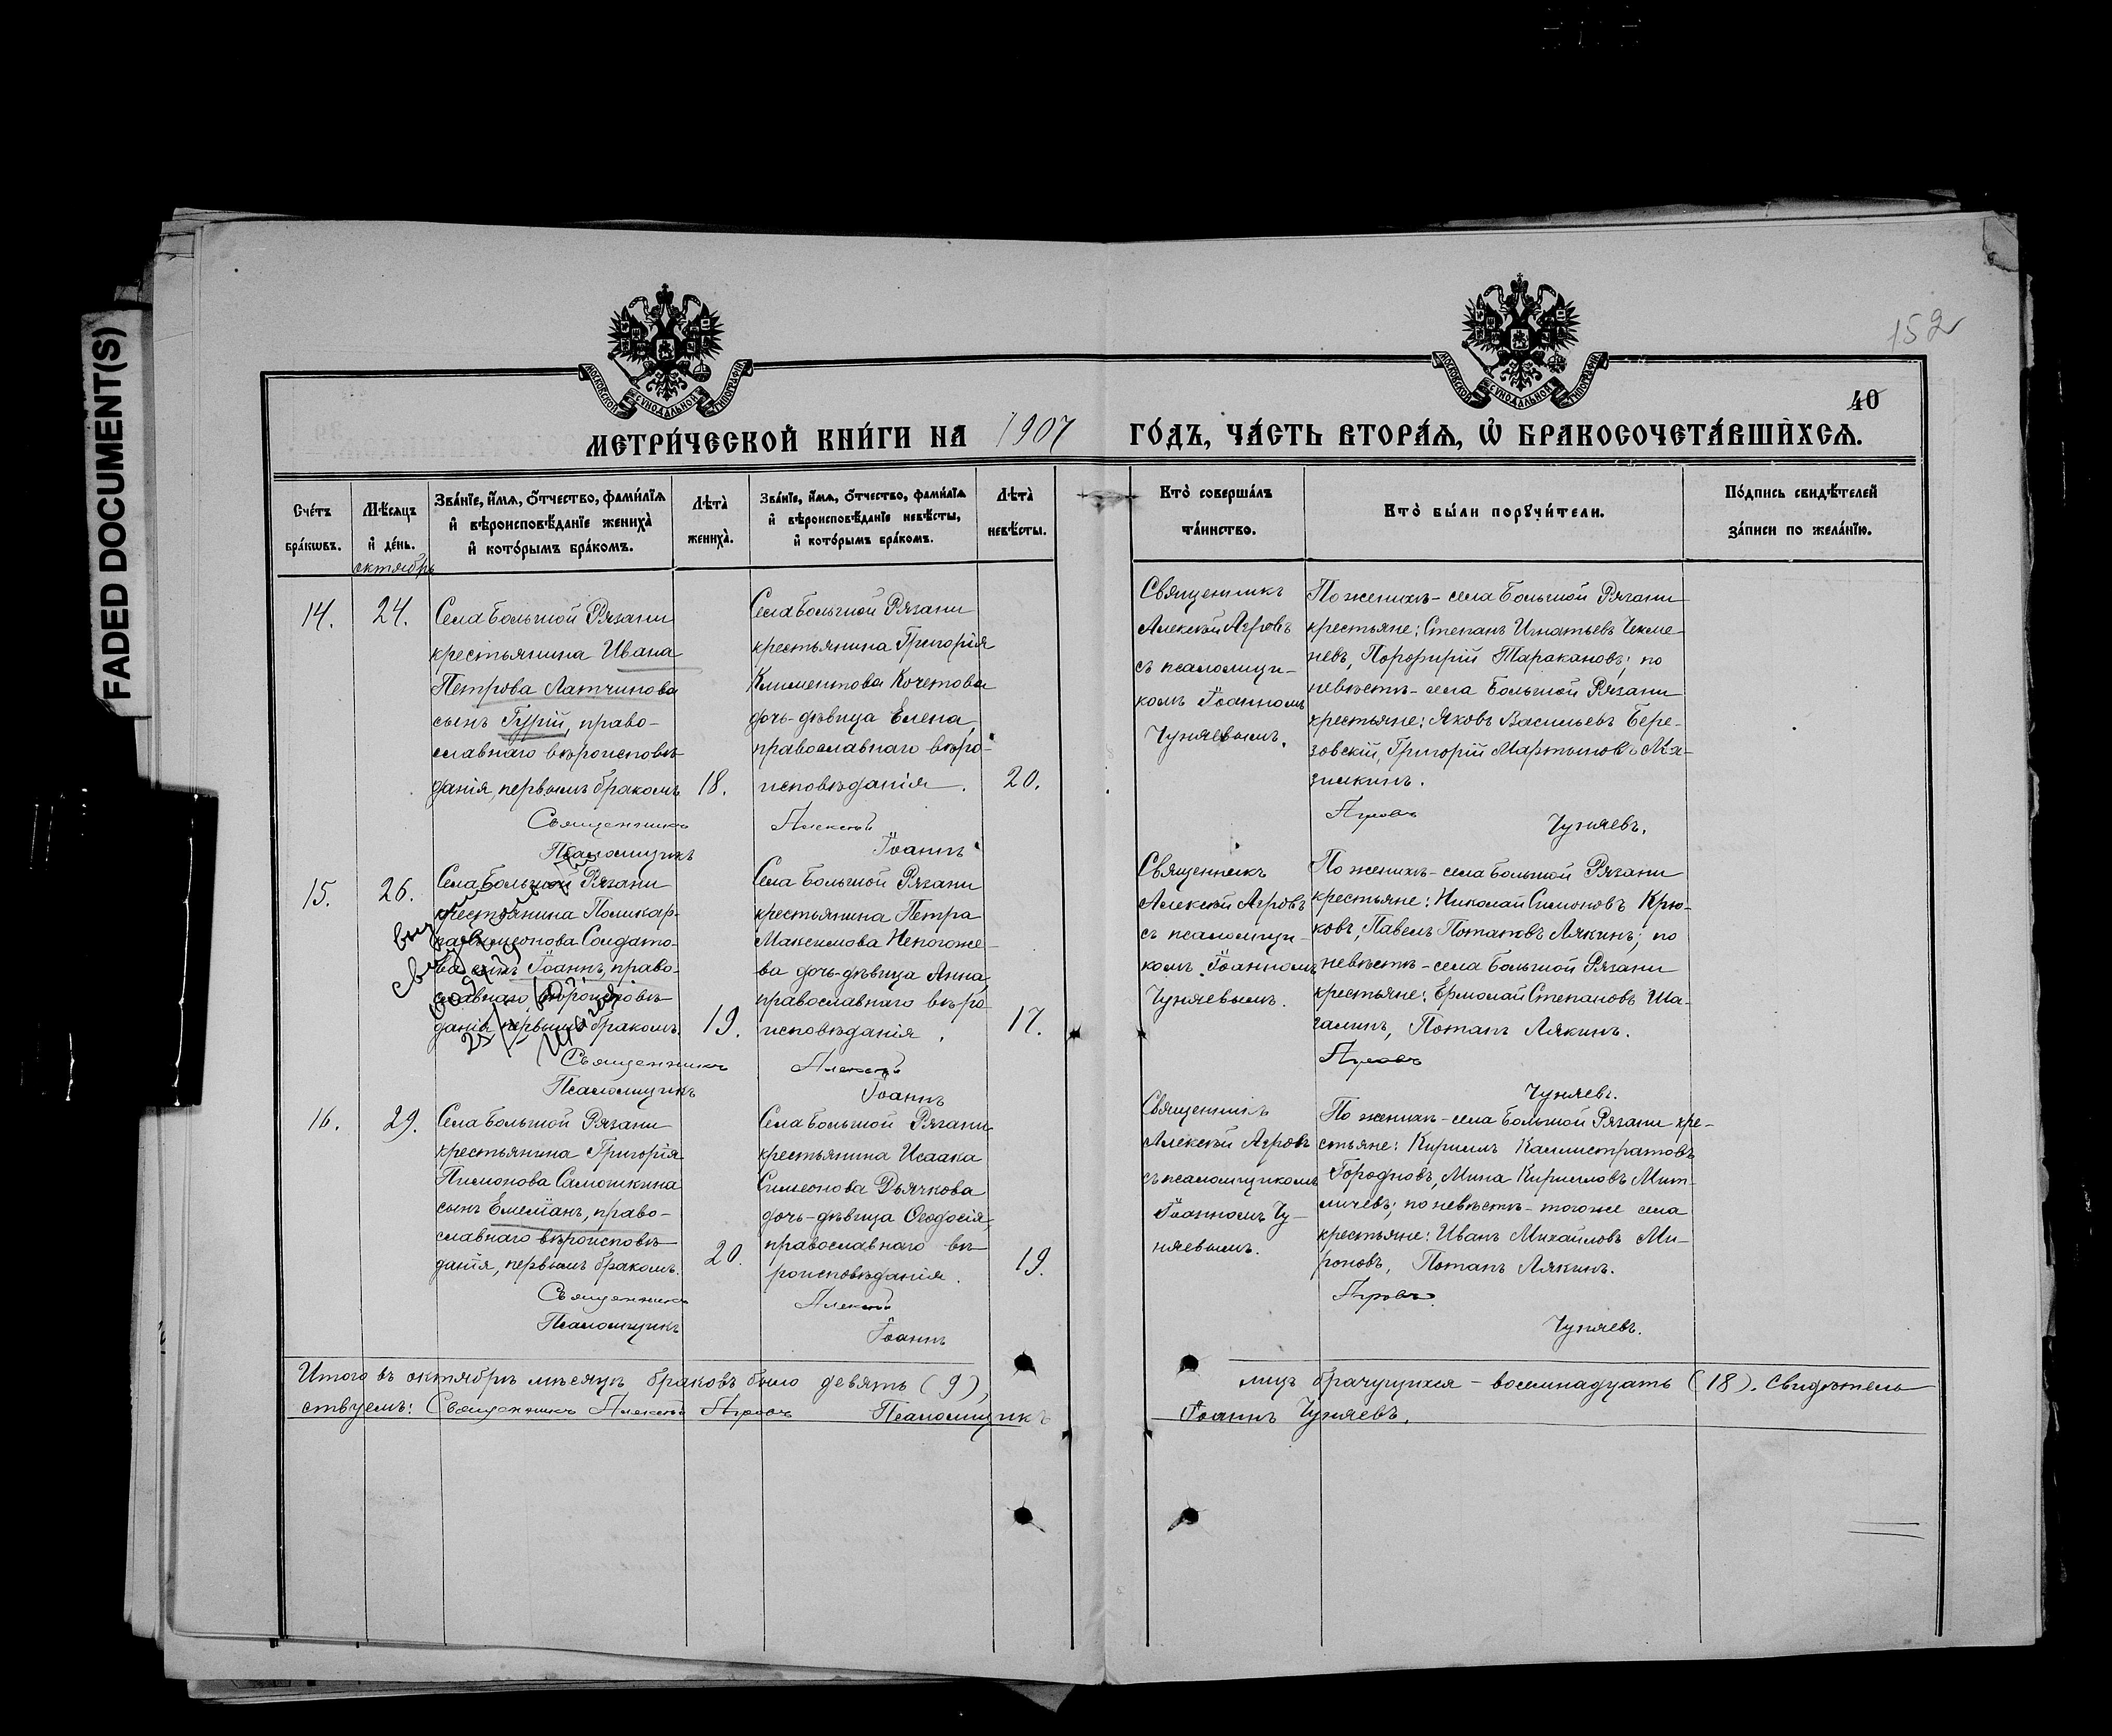 FADED DOCUMENT(S)
МОСКОВСКОЙ СѴНОДАЛЬНОЙ ТИПОГРАФІИ
МОСКОВСКОЙ СѴНОДАЛЬНОЙ ТИПОГРАФІИ
152
40
МЕТРИ́ЧЕСКОЙ КНИ́ГИ НА 1907 ГО́ДЪ, ЧА́СТЬ ВТОРА́Ѧ, Ѽ БРАКОСОЧЕТА́ВШИХСѦ.
Сче́тъ бра́кѡвъ.
Мѣ́сѧцъ и҆ де́нь.
октябрь
Зва́нїе, и҆́мѧ, ѻ҆́тчество, фами́лїѧ
и҆ вѣроисповѣ́данїе жениха̀
и҆ кото́рымъ бра́комъ.
Лѣта̀ жениха̀.
Зва́нїе, и҆́мѧ, ѻ҆́тчество, фами́лїѧ
и҆ вѣроисповѣ́данїе невѣ́сты,
и҆ кото́рымъ бра́комъ.
Лѣта̀ невѣ́сты.
Кто̀ соверша́лъ та́инство.
Кто̀ бы́ли порꙋчи́тели.
По́дпись свидѣ́телей за́писи по жела́нїю.
14.
24.
Села Большой Рязани
крестьянина Ивана
Петрова Латчинова
сынъ Гурій, право-
славнаго вѣроисповѣ-
данія, первымъ бракомъ
18.
Села Большой Рязани
крестьянина Григорія
Климентова Кочетова
дочь-дѣвица Елена,
православнаго вѣро-
исповѣданія.
20.
Священникъ
Алексѣй Агровъ
съ псаломщи-
комъ Іоанномъ
Чуняевымъ.
По женихѣ - села Большой Рязани
крестьяне: Степанъ Игнатьевъ Чекме-
невъ, Порфирій Таракановъ; по
невѣстѣ - села Большой Рязани
крестьяне: Яковъ Васильевъ Бере-
зовскій, Григорій Мартыновъ Ма-
зилкинъ.
Священникъ Алексѣй Агровъ
Псаломщикъ Іоаннъ Чуняевъ.
15.
26.
Села Большой Рязани
крестьянина Поликар-
па Симеонова Солдато-
ва сынъ Іоаннъ, право-
славнаго вѣроисповѣ-
данія, первымъ бракомъ.
19.
Села Большой Рязани
крестьянина Петра
Максимова Непогоже-
ва дочь-дѣвица Анна,
православнаго вѣро-
исповѣданія.
17.
Священникъ
Алексѣй Агровъ
съ псаломщи-
комъ Іоанномъ
Чуняевымъ.
По женихѣ - села Большой Рязани
крестьяне: Николай Симоновъ Крю-
ковъ, Павелъ Потаповъ Лякинъ; по
невѣстѣ - села Большой Рязани
крестьяне: Ермолай Степановъ Ша-
галинъ, Потапъ Лякинъ.
Священникъ Алексѣй Агровъ
Псаломщикъ Іоаннъ Чуняевъ.
16.
29.
Села Большой Рязани
крестьянина Григорія
Пимонова Самошкина
сынъ Емеліанъ, право-
славнаго вѣроисповѣ-
данія, первымъ бракомъ.
20.
Села Большой Рязани
крестьянина Исаака
Симеонова Дьячкова
дочь-дѣвица Ѳеодосія,
православнаго вѣ-
роисповѣданія.
19.
Священникъ
Алексѣй Агровъ
съ псаломщикомъ
Іоанномъ Чу-
няевымъ.
По женихѣ - села Большой Рязани кре-
стьяне: Кириллъ Каллистратовъ
Городновъ, Мина Кирилловъ Мит-
личевъ; по невѣстѣ - тогоже села
крестьяне: Иванъ Михаиловъ Ми-
роновъ, Потапъ Лякинъ.
Священникъ Алексѣй Агровъ.
Псаломщикъ Іоаннъ Чуняевъ.
Итого въ октябрѣ мѣсяцѣ браковъ было девять (9), лицъ брачущихся - восемнадцать (18). Свидѣтель-
ствуемъ: Священникъ Алексѣй Агровъ Псаломщикъ Іоаннъ Чуняевъ.